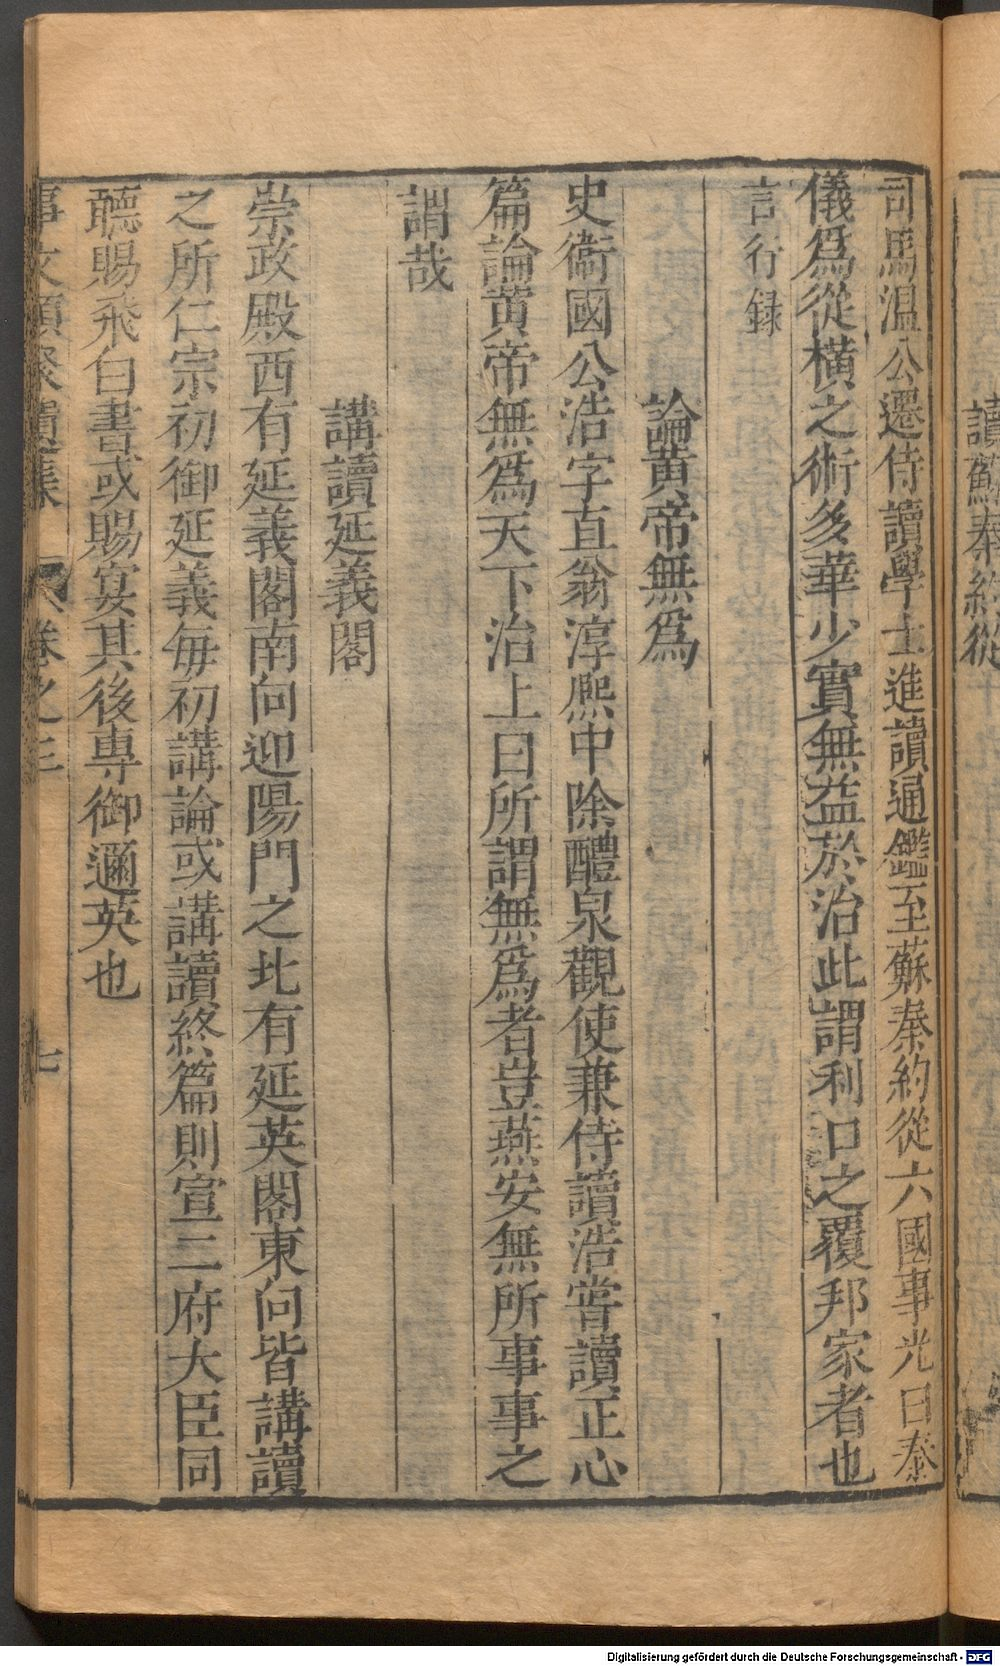 讀蘇秦約從
司馬温公遷侍讀學士進讀通鑑至蘇秦約從六國事光曰秦
儀爲從横之術多華少實無益於治此謂利口之覆邦家者也
言行録
論黄帝無爲
史衞國公浩字直翁淳熈中除醴泉觀使兼侍讀浩嘗讀正心
篇論黄帝無爲天下治上曰所謂無爲者豈燕安無所事事之
謂哉
講讀延義閣
崇政殿西有延義閣南向迎陽門之北有延英閣東向皆講讀
之所仁宗初御延義毎初講論或講讀終篇則宣二府大臣同
聽賜飛白書或賜宴其後專御邇英也
事文類聚遺集 卷之三 七
Digitalisierung gefördert durch die Deutsche Forschungsgemeinschaft - DFG